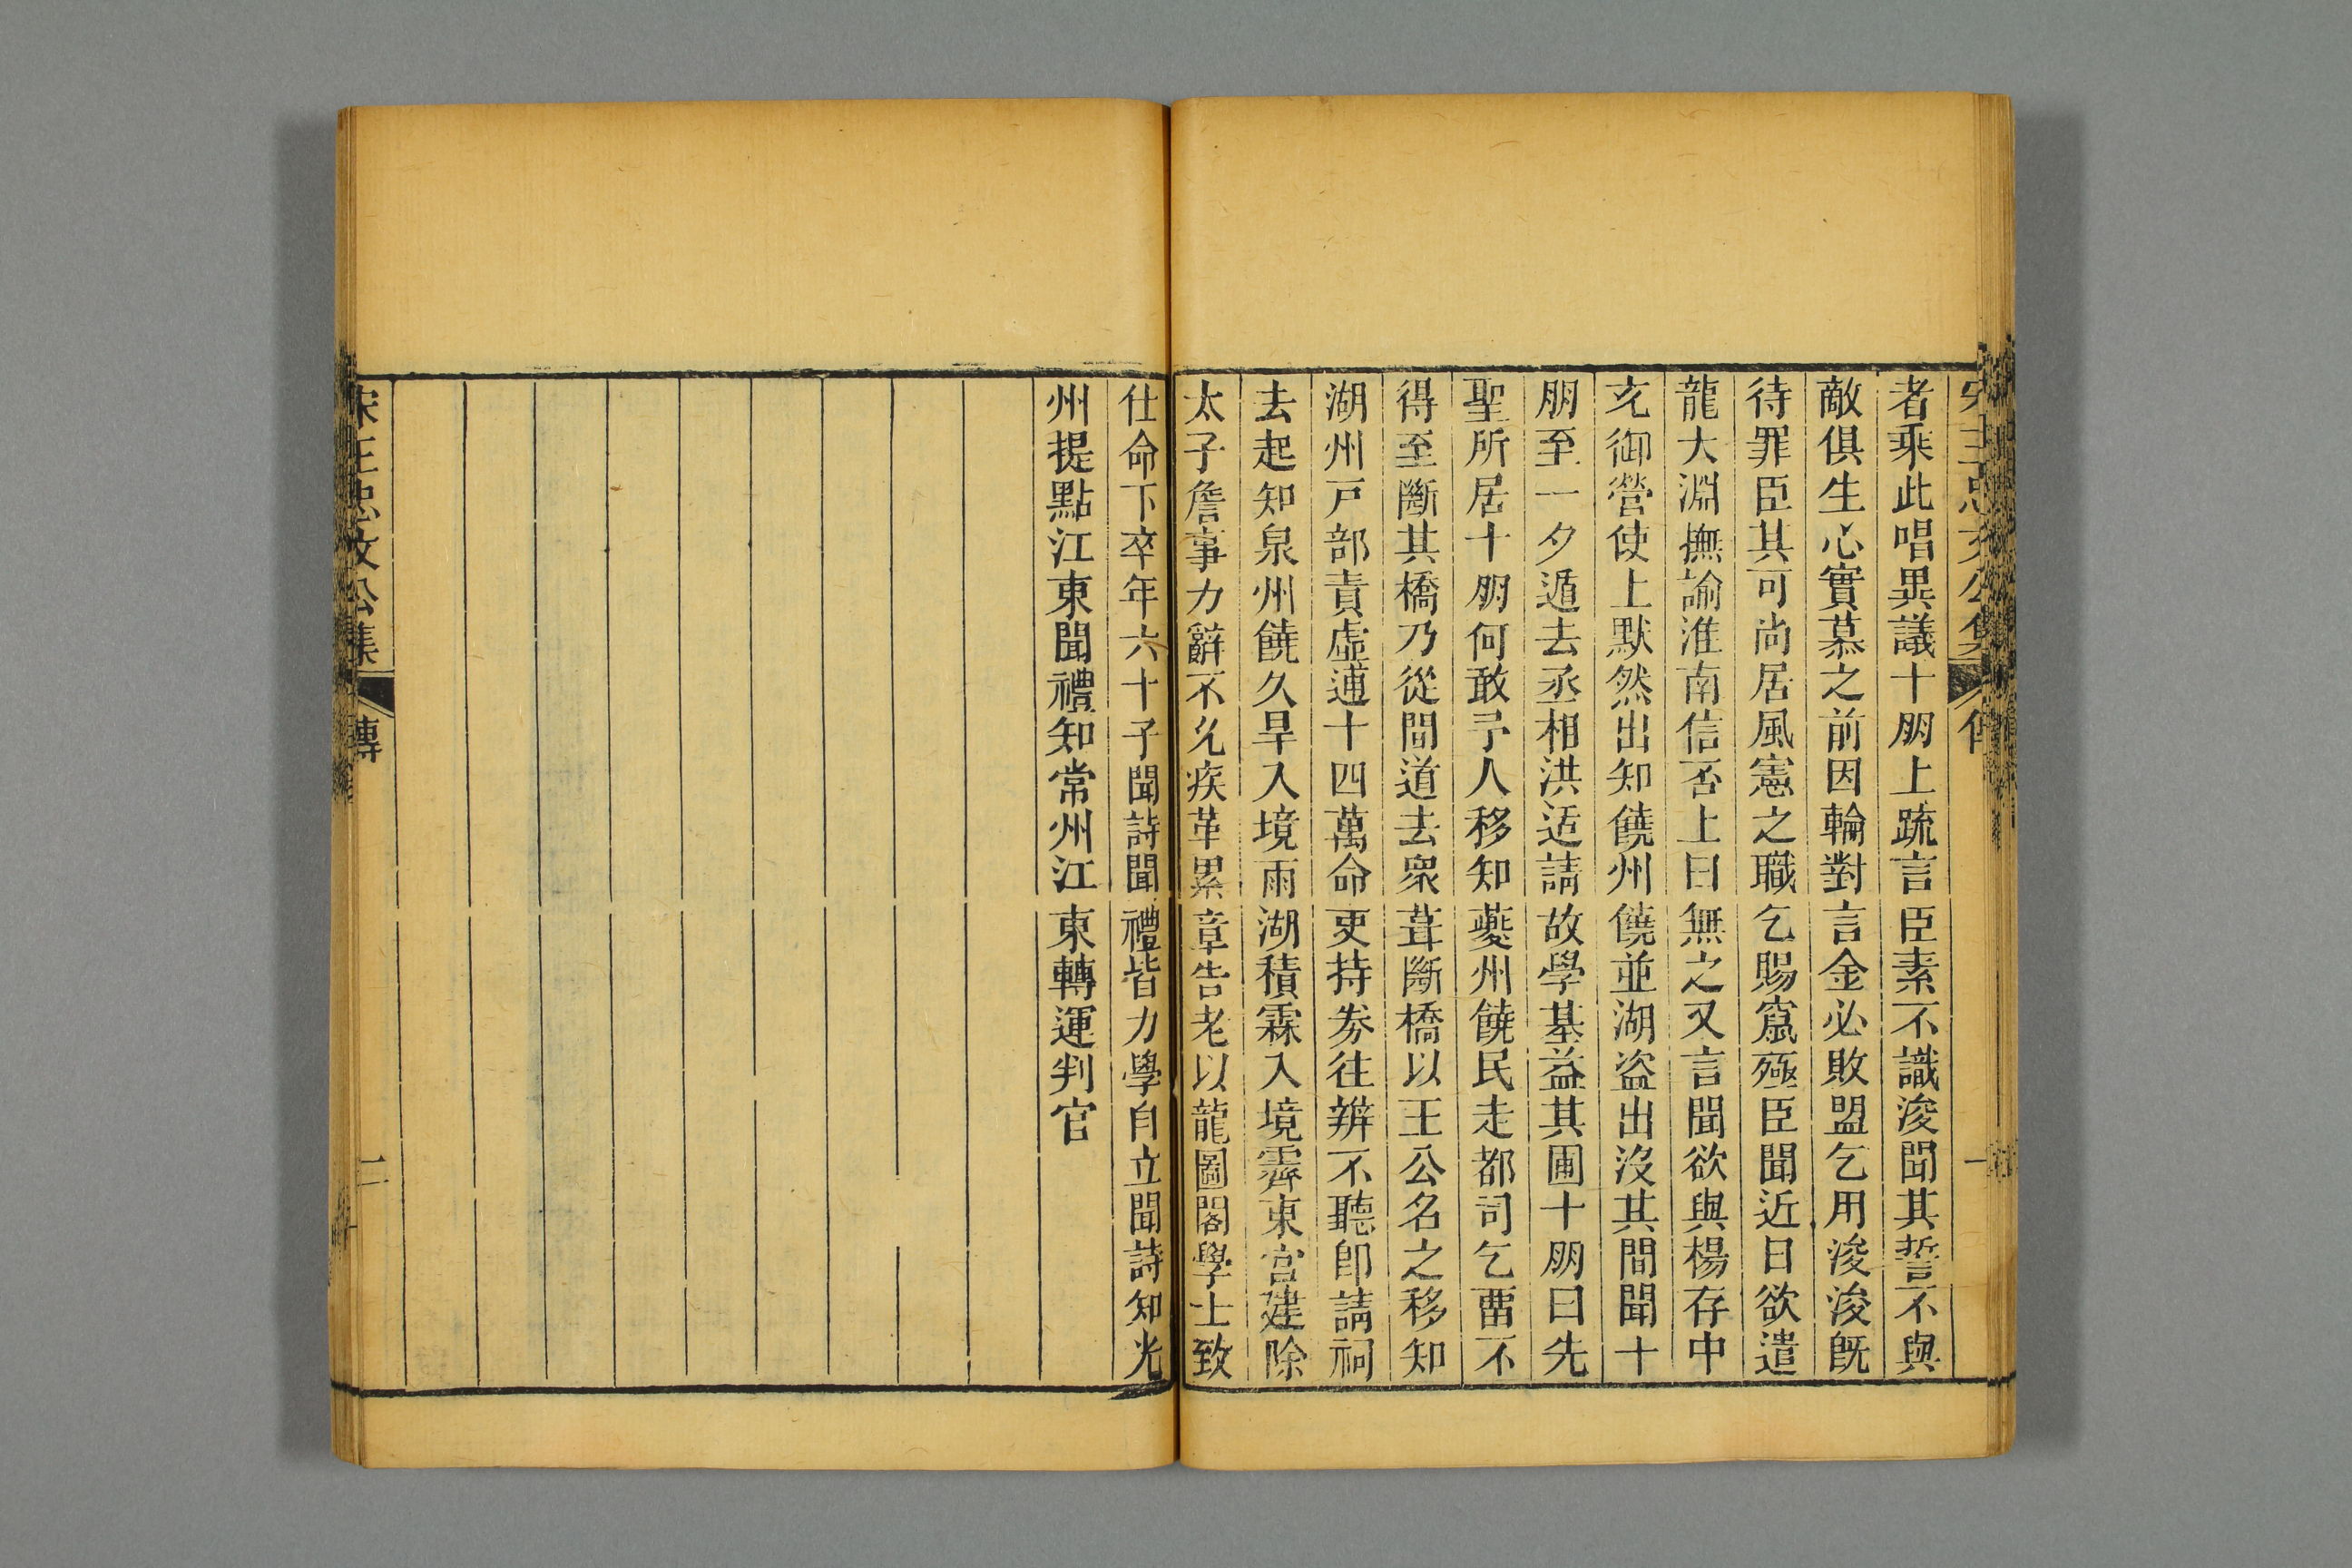 者乘此唱異議十朋上疏言臣素不識浚聞其誓不與
敵俱生心實慕之前因輪對言金必敗盟乞用浚浚旣
待罪臣其可尚居風憲之職乞賜竄殛臣聞近日欲遣
龍大淵撫諭淮南信否上曰無之又言聞欲與楊存中
充御營使上默然出知饒州饒並湖盗出沒其間聞十
朋至一夕遁去丞相洪适請故學基益其圃十朋曰先
聖所居十朋何敢予人移知夔州饒民走都司乞畱不
得至斷其橋乃從間道去衆葺斷橋以王公名之移知
湖州戸部責虛逋十四萬命吏持劵往辨不聽卽請祠
去起知泉州饒久旱入境雨湖積霖入境霽東宮建除
太子詹事力辭不允疾革累章告老以龍圖閣學士致
仕命下卒年六十子聞詩聞禮皆力學自立聞詩知光
州提點江東聞禮知常州江東轉運判官
宋王忠文公集 傳 二